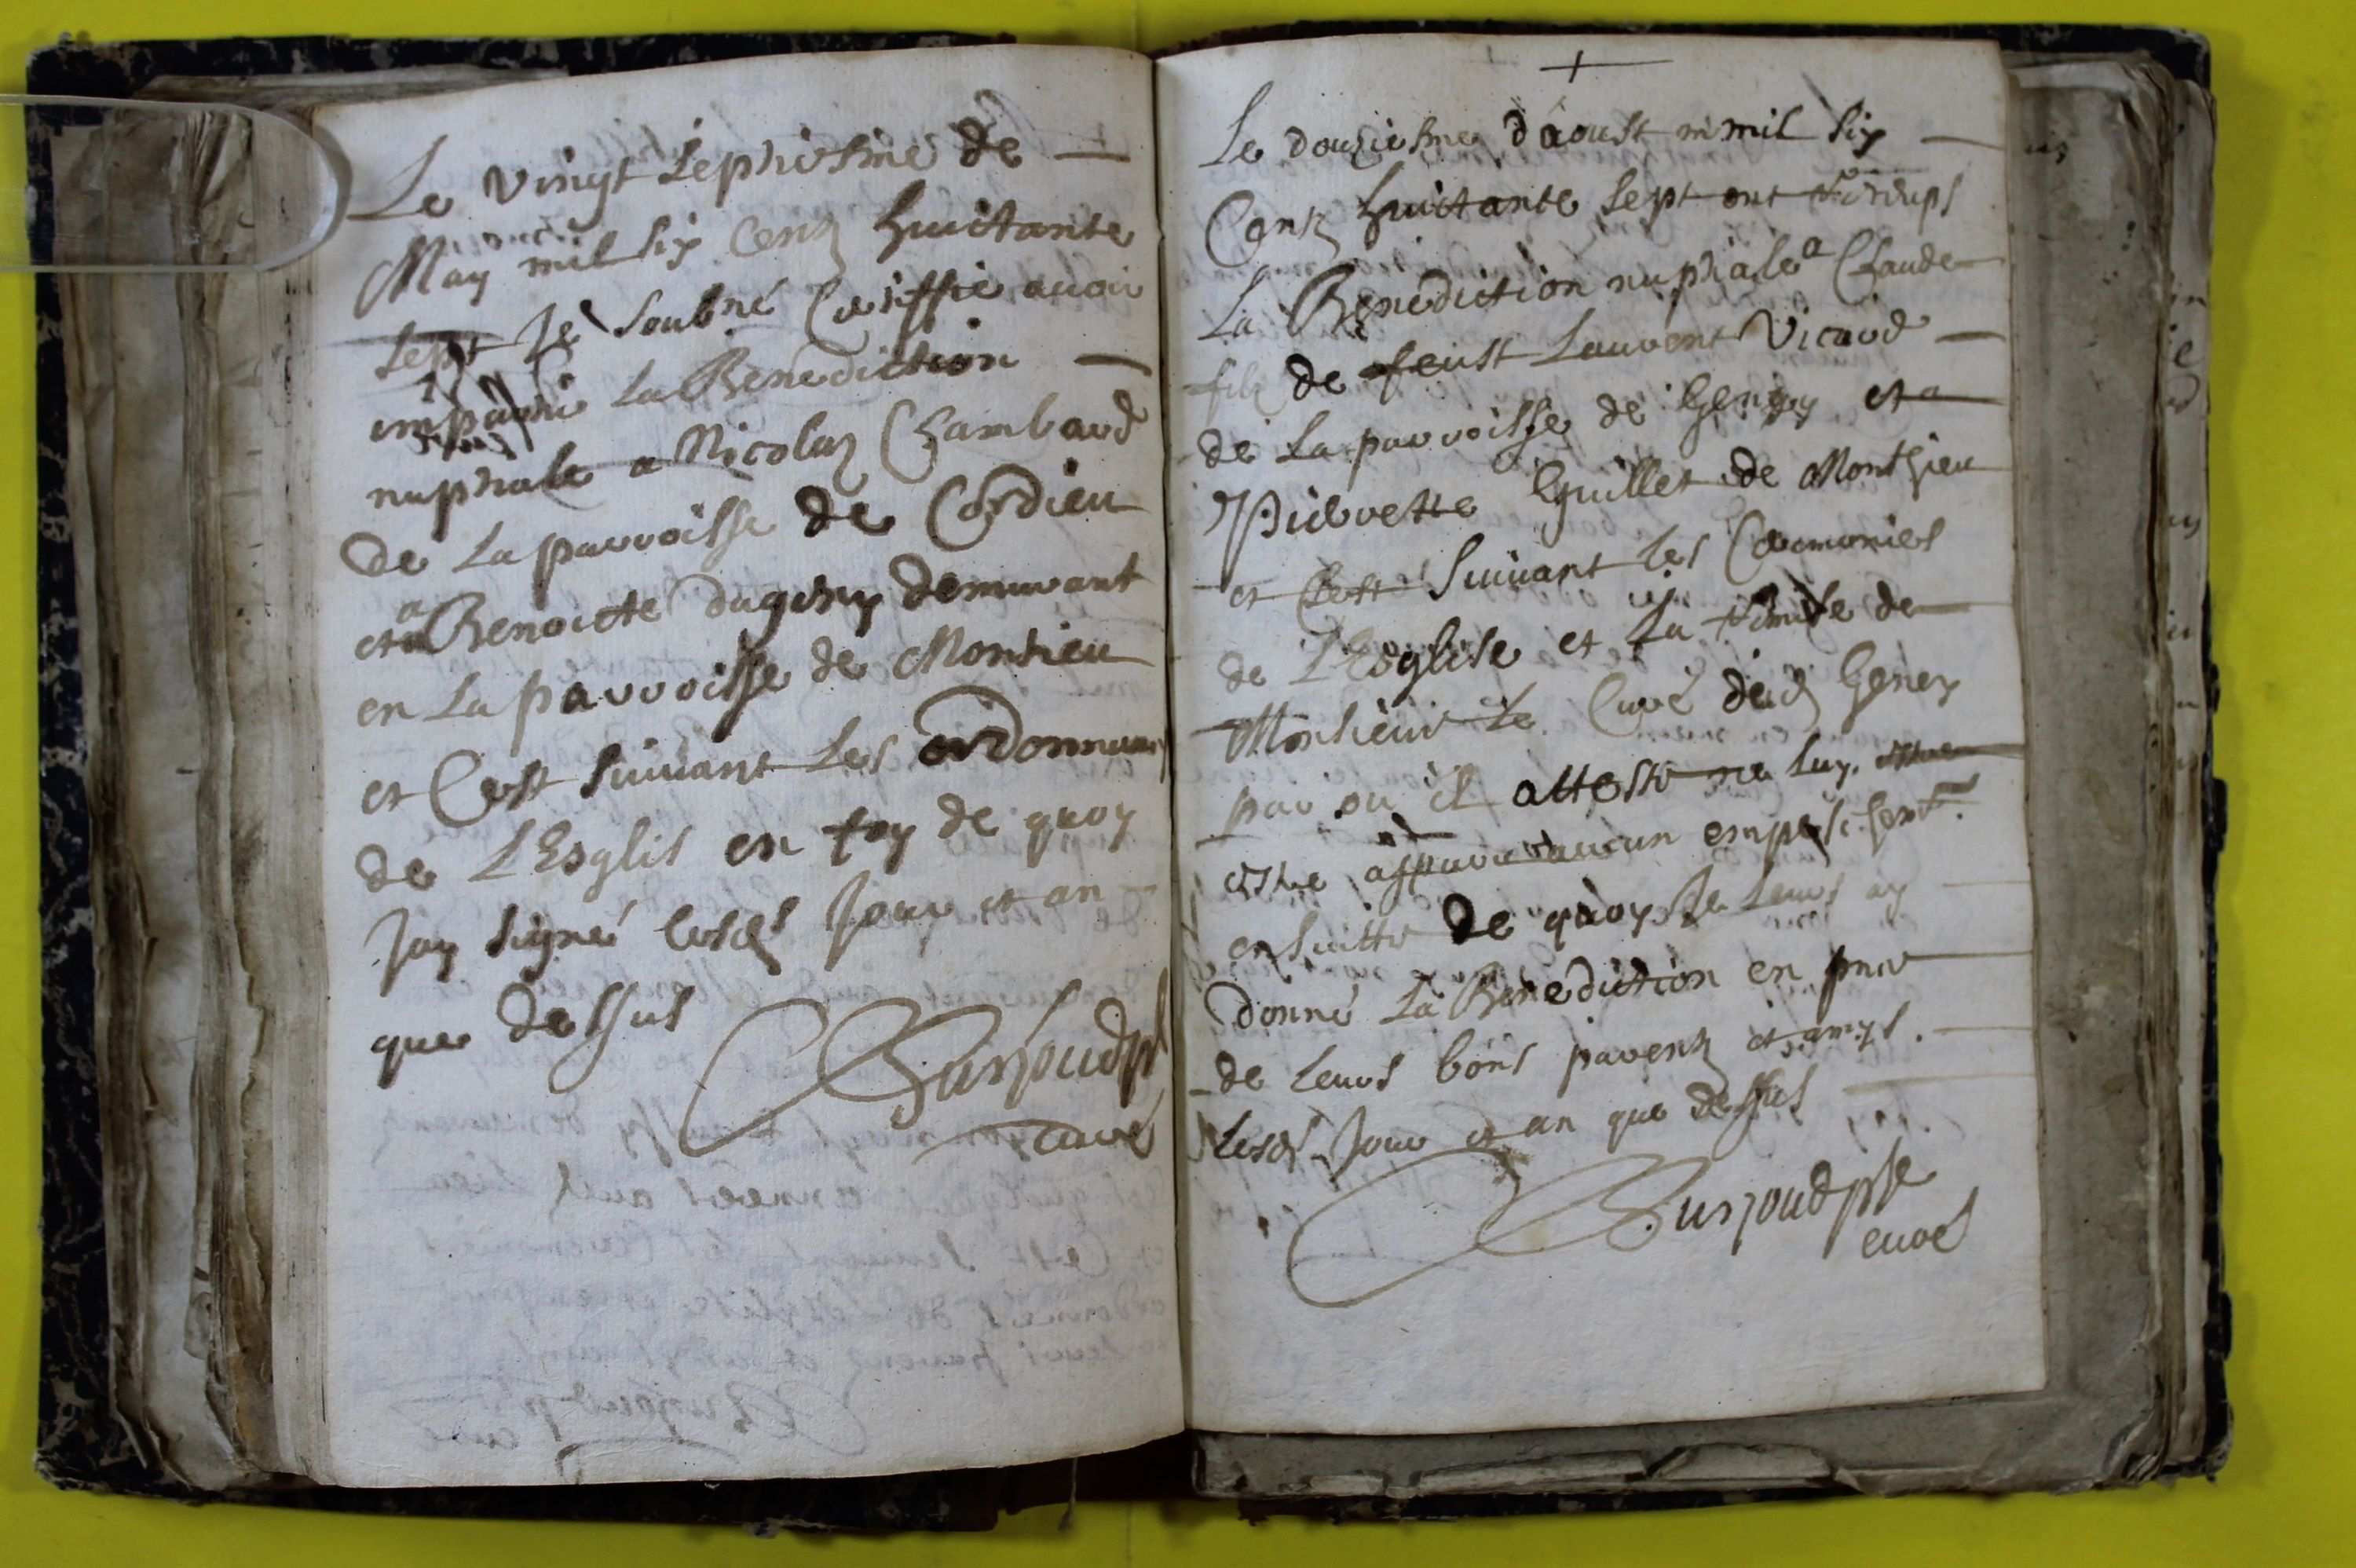 Le vingt septiesme de
May mil six Centz huictante
sept Je soubné Certiffie avoir
imparti La Benediction
nuptiale a Nicolas Chambard
de La parroisse de Cordieu
et a Benoicte dugeny demurant
en La parroisse de Montieu
et Cest suivant Les ordonnances
de L'Esglis en foy de quoy
Jay signé lesds Jour et an
que dessus
curé
Le douziesme d'aoust mil six
Centz huictante sept ont
La Benediction nuptiale a Claude
fils de feust Laurent Vicard
de La parroisse de Genay et a
Pierrette Guillet de Monthieu
et Cest suivant les Ceremonies
de L'Esglise et La remise de
Monsieur Le Curé dud Geney
par ou il atteste ne luy estre
estre apparu aucun empeschemt.
en suitte de quoy Je Leurs ay
donné La Benediction en pnce
de Leurs bons parentz et amys.
Lesds Jour et an que dessus
curé